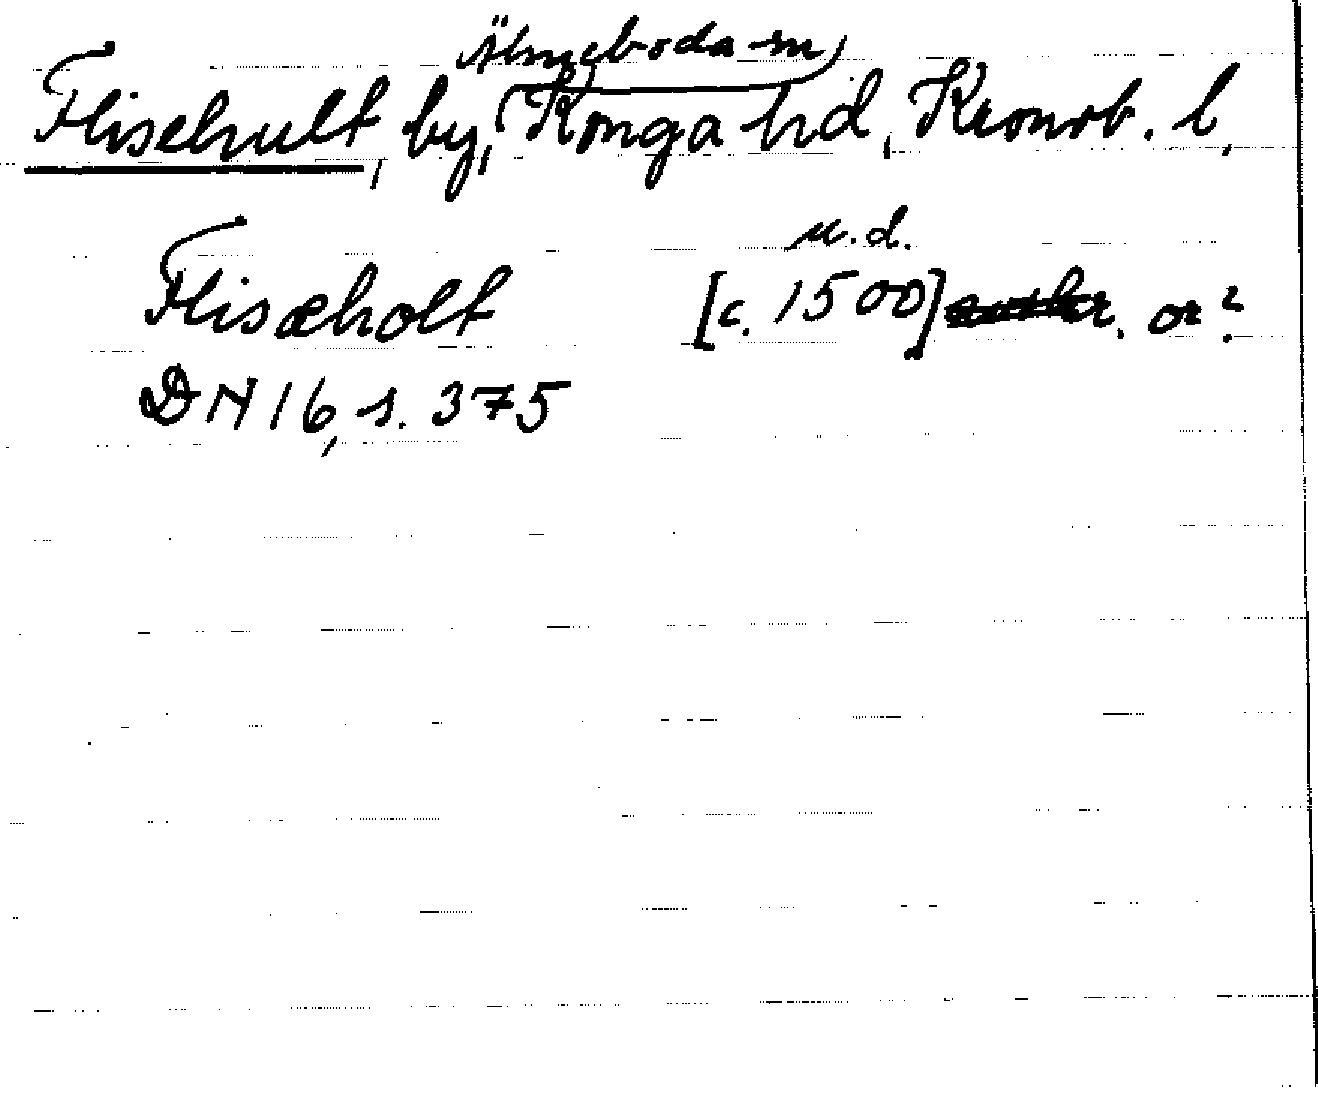 Älmeboda sn
Flisehult, by, Konga hd, Kronob. l,
u.d.
Flisæholt [c. 1500] or?
DN 16, s. 375